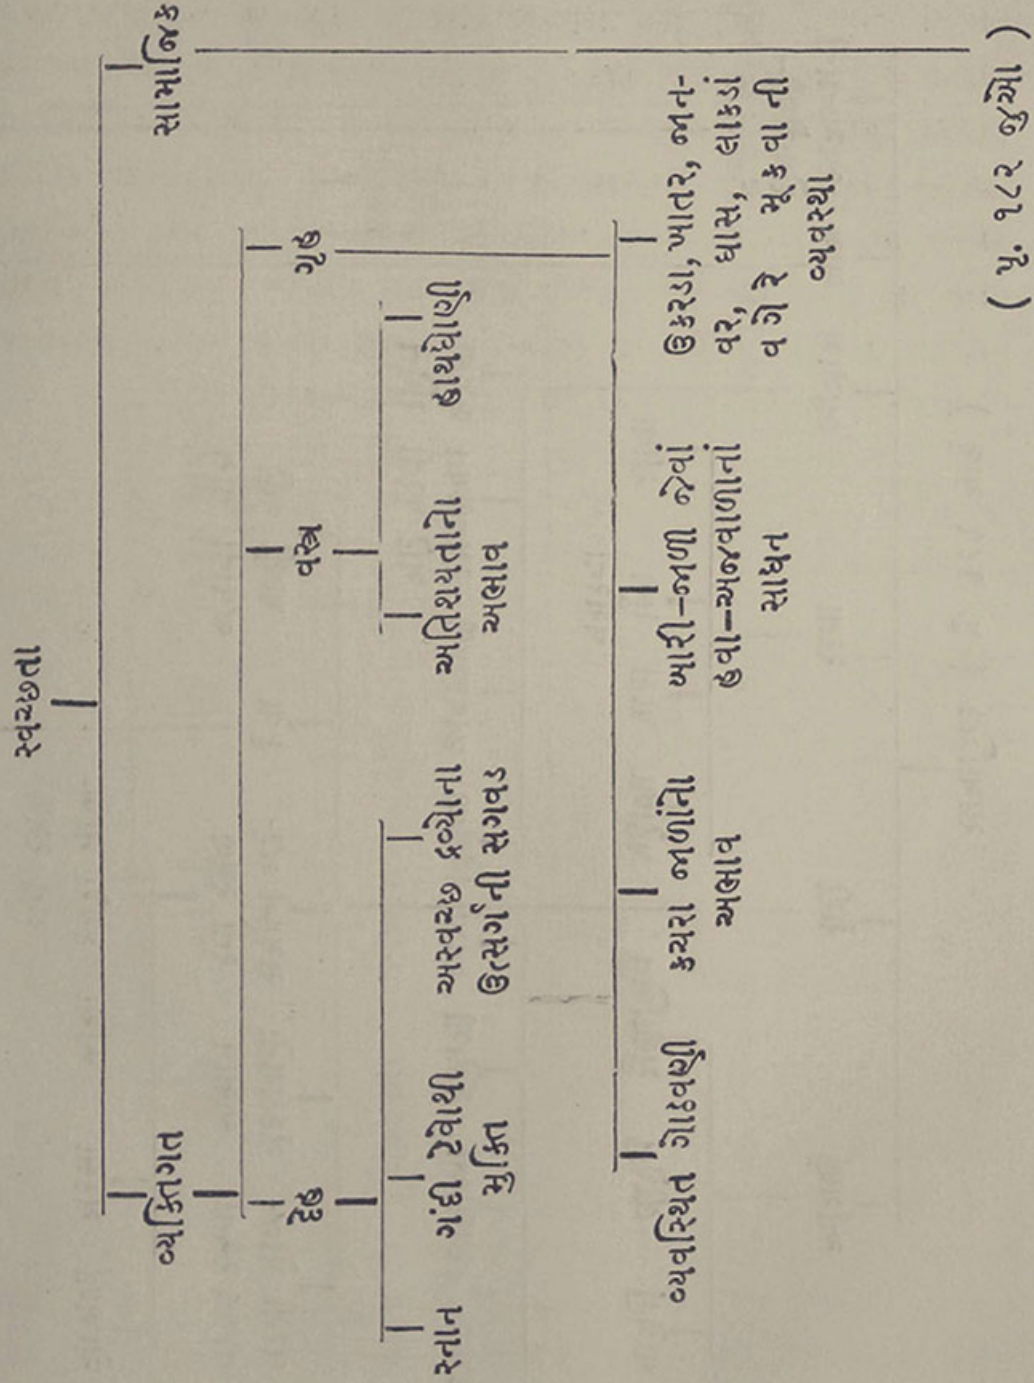 સ્વચ્છતા
વ્યક્તિગત
સામાજિક
દેહ
વસ્ત્ર
ગૃહ
સ્નાન
ગંદી ટેવોથી
મુક્તિ
અસ્વચ્છ દ્રવ્યોના
ઉત્સર્ગની સગવડ
અતિશયતાનો
અભાવ
હાથધોણી
વ્યવસ્થિત ગોઠવણી
કચરા જાળાંનો
અભાવ
બારી-જાળી જેવાં
હવા-અજવાળાનાં
સાધન
ઉકરડા, ખાતર, જાન-
વર, ઘાસ, લાકડાં
વગેરે મૂકવાની
વ્યવસ્થા
( પૃ. ૧૮૨ જુઓ )